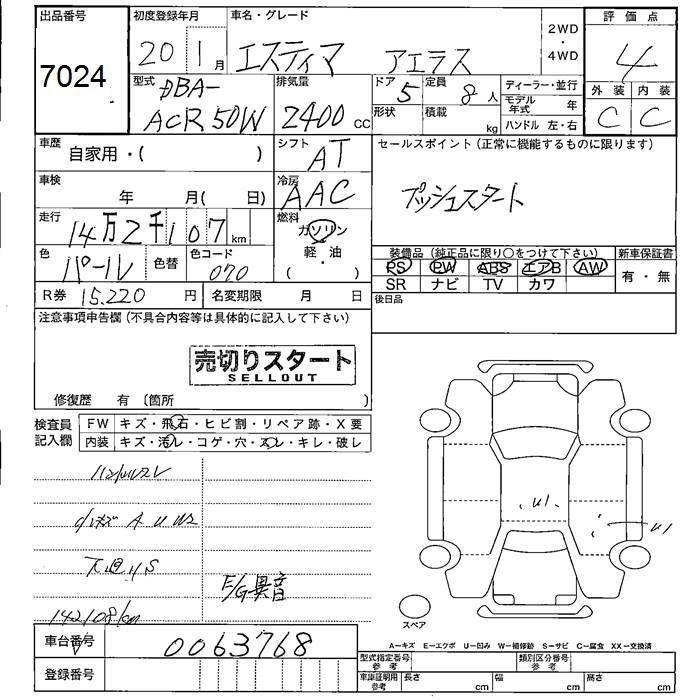 出品番号
7024
初度登録年月
20 1月
車名・グレード
エスティマ アエラス
2WD
・
4WD
評価点
4
外装 内装
C C
型式
DBA-
ACR50W
排気量
2400 CC
ドア 5
定員 8人
形状
積載 kg
ディーラー・並行
モデル年式 年
ハンドル 左・右
車歴
自家用・( )
シフト
AT
セールスポイント(正常に機能するものに限ります)
プッシュスタート
車検
年 月( 日)
冷房
AAC
走行
14万2千107km
燃料
ガソリン
軽・油
・( )
色
パール
色替
色コード
070
装備品(純正品に限り○をつけて下さい)
新車保証書
PS PW ABS エアB AW
SR ナビ TV カワ
有・無
R券 15,220 円
名変期限 月 日
後日品
注意事項申告欄(不具合内容等は具体的に記入して下さい)
売切りスタート
SELLOUT
修復歴 有〔箇所 〕
検査員
記入欄
FW キズ・飛石・ヒビ割・リペア跡・X要
内装 キズ・汚レ・コゲ・穴・スレ・キレ・破レ
小キズ A U W2
下廻りS
E/G異音
142108km
U1
U1
スペア
車台番号
0063768
登録番号
A-キズ E-エクボ U-凹み W-補修跡 S-サビ C-腐食 XX-交換済
型式指定番号
参考
類別区分番号
参考
車庫証明用
参考
長さ cm
幅 cm
高さ cm